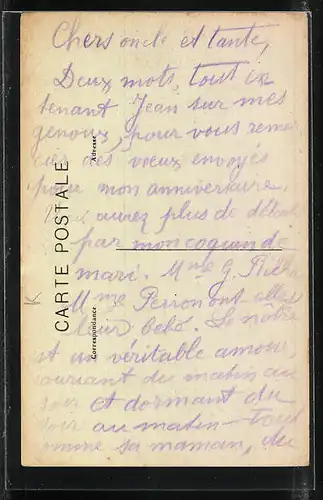 Chers oncle et tante,
Deux mots, tout en
tenant Jean sur mes
genoux, pour vous remer
cier des vœux envoyés
pour mon anniversaire.
Vous aurez plus de détails
par mon coquin de
mari. Mme G.
Mme ont
leur bébé. Le nôtre
est un véritable amour,
souriant du matin au
soir et dormant du
soir au matin - tout
comme sa maman, du
CARTE POSTALE
Correspondance
Adresse